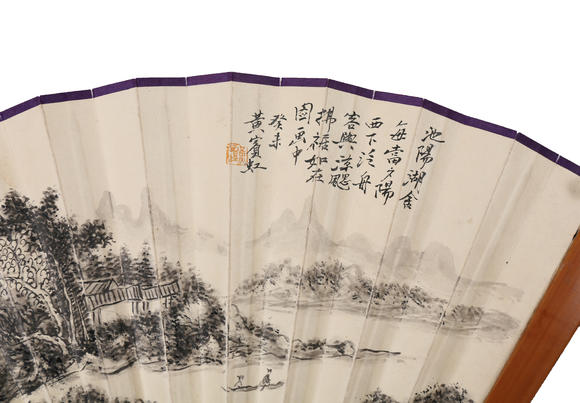 池陽湖舍
每當夕陽
西下泛舟
容與涼飔
拂裾如在
圖画中
癸未
黃賓虹